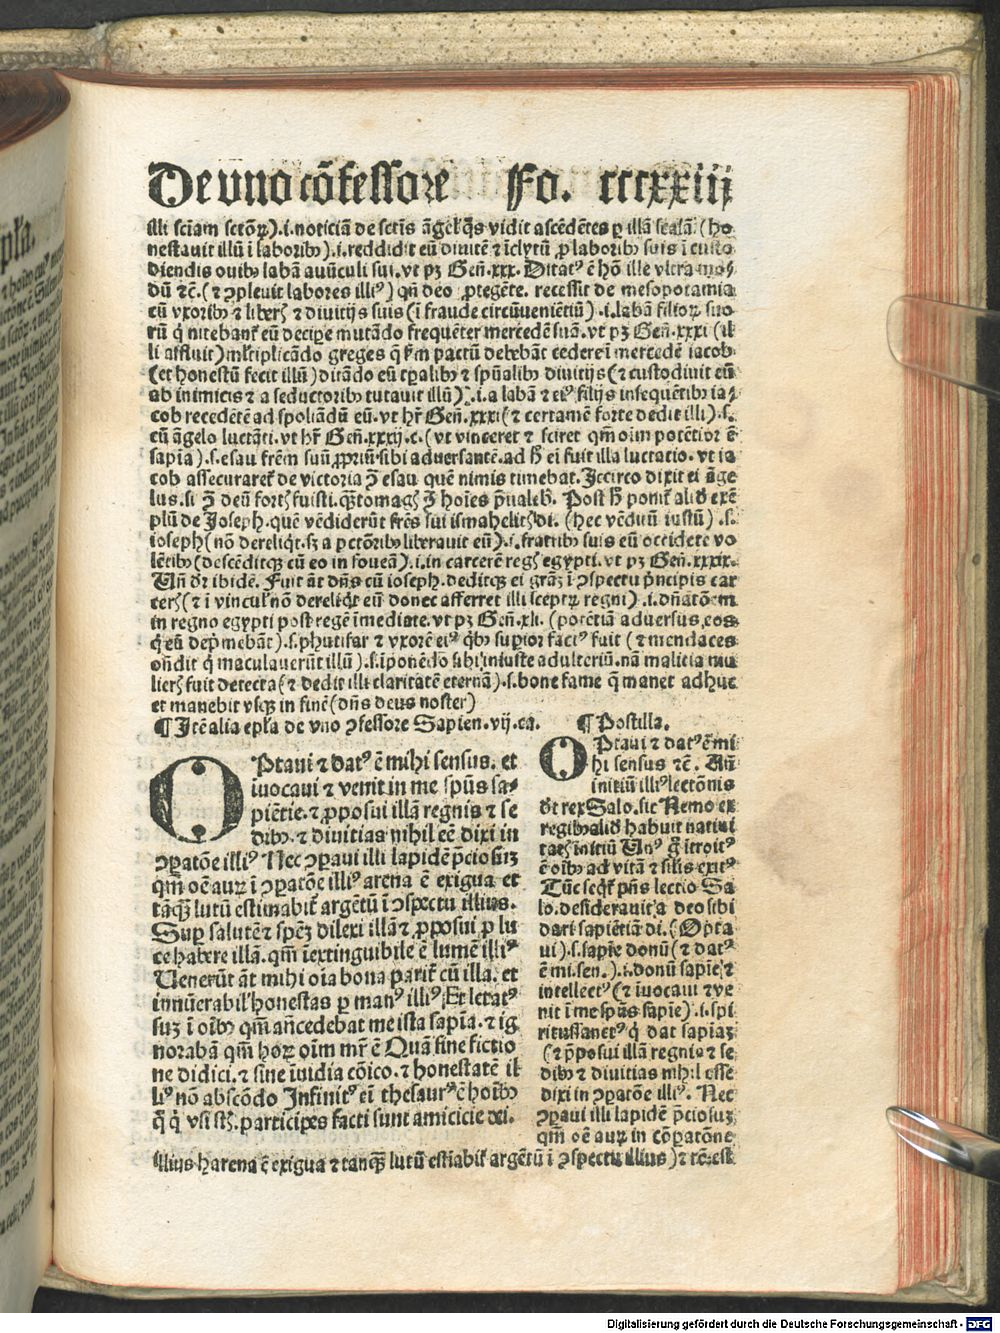 De vno cõfessore Fo. cccxxiij
illi sciam sctõꝝ).i.noticiã de sctis ãgel' q̃s vidit ascẽdẽtes ꝑ illã scalã (ho
nestauit illũ ĩ laboribꝰ).i.reddidit eũ diuitẽ ⁊ ĩclytũ ꝓ laboribꝰ suis ĩ custo
diendis ouibꝰ labã auũculi sui.vt pꝫ Geñ.xxx. Ditatꝰ ẽ hõ ille vltra mo⸗
dũ ⁊c̃.(⁊ ꝯpleuit labores illiꝰ) qñ deo ꝓtegẽte. recessit de mesopotamia
cũ vxoribꝰ ⁊ liberꝭ ⁊ diuitijs suis (ĩ fraude circũueniẽtiũ).i.labã filioꝝ suo
rũ q̇ nitebanť eũ decipe mutãdo frequẽter mercedẽ suã.vt pꝫ Geñ.xxxi (il
li affluit) mľtiplicãdo greges q̇ ẜm pactũ debebãt cedere ĩ mercedẽ iacob
(et honestũ fecit illũ) ditãdo eũ tꝑalibꝰ ⁊ spũalibꝰ diuitijs (⁊ custodiuit eũ
ab inimicis ⁊ a seductoribꝰ tutauit illũ).i.a labã ⁊ eiꝰ filijs insequẽtibꝰ ia⸗
cob recedẽtẽ ad spoliãdũ eũ.vt hr̃ Geñ.xxxi (⁊ certamẽ forte dedit illi).s.
cũ ãgelo luctãti.vt hr̃ Geñ.xxxij.c.(vt vinceret ⁊ sciret qm̃ oim potẽtior ẽ
sapĩa).s.esau frẽm suũ ꝓpriũ sibi aduersantẽ.ad h̃ ei fuit illa luctatio.vt ia
cob assecurareť de victoria ꝯ̃ esau quẽ nimis timebat. Jccirco dixit ei ãge
lus.si ꝯ̃ deũ fortꝭ fuisti.q̃ꝫtomagꝭ ꝯ̃ hoĩes p̃ualebꝭ. Post h̃ poniť aliđ exẽ
plũ de Joseph.quẽ vẽdiderũt frẽs sui ismahelitꝭ di. (hec vẽditũ iustũ) .s.
ioseph (nõ dereliq̇t.sꝫ a pctõribꝰ liberauit eũ).i.fratribꝰ suis eũ occidere vo
lẽtibꝰ (descẽditqꝫ cũ eo in foueã).i.in carcerẽ regꝭ egypti.vt pꝫ Geñ.xxxix.
Uñ dr̃ ibidẽ. Fuit aũt dñs cũ ioseph.deditqꝫ ei grãꝫ ĩ ꝯspectu p̃ncipis car
cerꝭ (⁊ ĩ vincul' nõ dereliq̇t eũ donec afferret illi sceptꝝ regni).i.dñatõem
in regno egypti post regẽ ĩmediate.vt pꝫ Geñ.xli. (potẽtiã aduersus eos
q̇ eũ depmebãt).s.phutifar ⁊ vxorẽ eiꝰ q̇bꝰ superior factꝰ fuit (⁊ mendaces
oñdit q̇ maculauerũt illũ).s.ĩponẽdo sibi iniuste adulteriũ.nã malicia mu
lierꝭ fuit detecta (⁊ dedit illi claritatẽ eternã).s.bone fame q̃ manet adhuc
et manebit vsqꝫ in finẽ (dñs deus noster)
¶ Jtẽ alia epľa de vno ꝯfessore Sapien.vij.ca.
OPtaui ⁊ datꝰ ẽ mihi sensus. et
iuocaui ⁊ venit in me spũs sa⸗
piẽtie.⁊ ꝓposui illã regnis ⁊ se
dibꝰ.⁊ diuitias nihil eẽ dixi in
ꝯꝑatõe illiꝰ Nec ꝯꝑaui illi lapidẽ p̃ciosuꝫ
qm̃ oẽ auꝝ ĩ ꝯꝑatõe illiꝰ arena ẽ exigua et
tãqꝫ lutũ estimabiť argẽtũ ĩ ꝯspectu illius.
Sup salutẽ ⁊ spẽꝫ dilexi illã ⁊ ꝓposui ꝓ lu
ce habere illã.qm̃ ĩextinguibile ẽ lumẽ illiꝰ
Uenerũt aũt mihi oĩa bona pariť cũ illa. et
innũerabil' honestas ꝑ manꝰ illiꝰ Et letatꝰ
suꝫ ĩ oĩbꝰ qm̃ añcedebat me ista sapĩa.⁊ ig
norabã qm̃ hoꝝ oĩm mr̃ ẽ Quã sine fictio
ne didici.⁊ sine ĩuidia cõico.⁊ honestatẽ il
liꝰ nõ abscõdo Jnfinitꝰ eĩ thesaurꝰ ẽ hoĩbꝰ
q̃ q̇ vsi sꝭ.participes facti sunt amicicie dei.
¶ Postilla.
OPtaui ⁊ datꝰ ẽ mi
hi sensus ⁊c̃. Uñ
initiũ illiꝰ lectõnis
dr̃ rex Salo.sic Nemo ex
regibꝰ aliđ habuit natiui
tatꝭ initiũ Unꝰ g̃ ĩtroitꝰ
ẽ oĩbꝰ ad vitã ⁊ silis exitꝰ
Tũc seq̇ť p̃ñs lectio Sa
lo.desiderauit a deo sibi
dari sapiẽtiã di. (Opta
ui).s.sapie donũ (⁊ datꝰ
ẽ mi.sen.).i.donũ sapie ⁊
intellectꝰ (⁊ ĩuocaui ⁊ ve
nit ĩ me spũs sapie).i.spi
ritussanctꝰ q̇ dat sapiaꝫ
(⁊ p̃posui illã regnis ⁊ se
dibꝰ ⁊ diuitias nihil esse
dixi in ꝯꝑatõe illiꝰ. Nec
ꝯꝑaui illi lapidẽ p̃ciosuꝫ
qm̃ oẽ auꝝ in cõꝑatõne
illius harena ẽ exigua ⁊ tanq̃ꝫ lutũ estĩabiť argẽtũ ĩ ꝯspectu illius) ⁊ rõ est
Digitalisierung gefördert durch die Deutsche Forschungsgemeinschaft - DFG